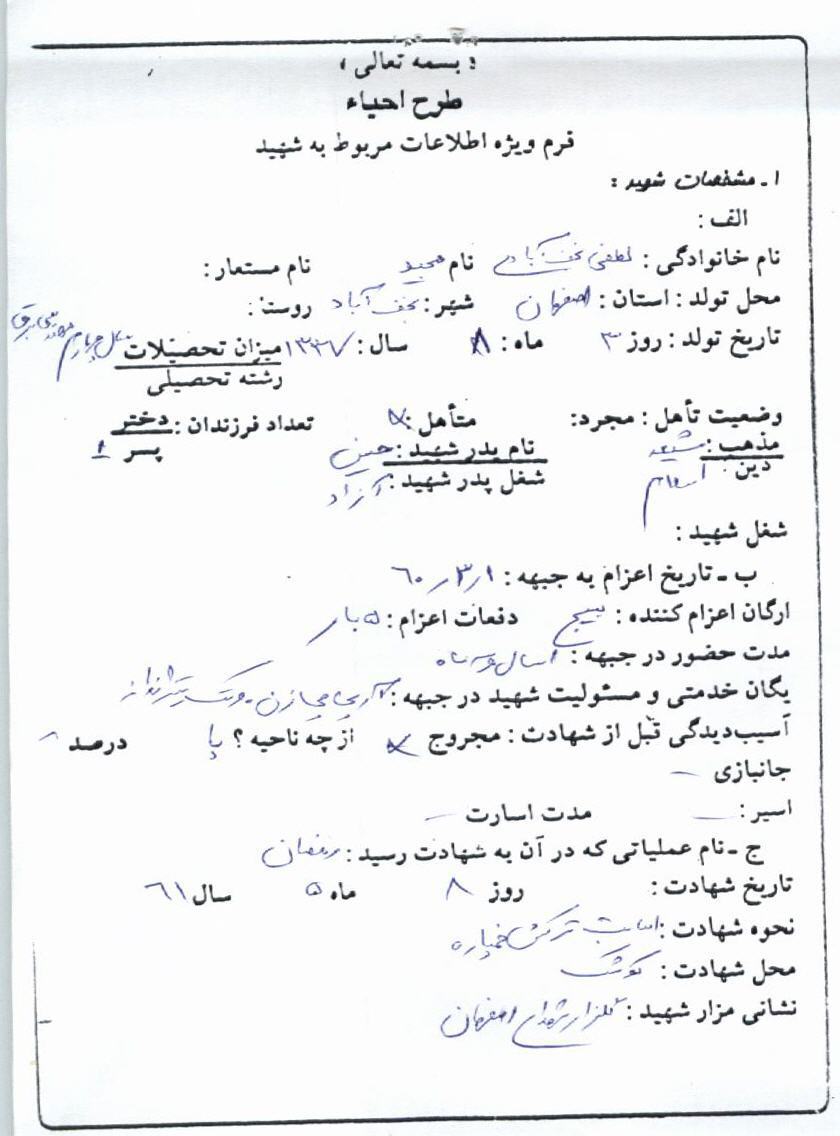 « بسمه تعالی »
طرح احیاء
فرم ویژه اطلاعات مربوط به شهید
۱ـ مشخصات شهید :
الف :
نام خانوادگی : لطفی نجف آبادی نام مجید نام مستعار :
محل تولد : استان : اصفهان شهر : نجف آباد روستا :
تاریخ تولد : روز ۳ ماه : ۸ سال : ۱۳۳۷ میزان تحصیلات سال چهارم مهندسی برق
رشته تحصیلی
وضعیت تأهل : مجرد: متأهل : × تعداد فرزندان : دختر
مذهب : شیعه نام پدر شهید : حسین پسر ۱
دین : اسلام شغل پدر شهید : آزاد
شغل شهید :
ب ـ تاریخ اعزام به جبهه : ۶۰/۳/۱
ارگان اعزام کننده : بسیج دفعات اعزام : ۵ بار
مدت حضور در جبهه : ۱سال و ماه
یگان خدمتی و مسئولیت شهید در جبهه : آرپی جی زن - و تک تیرانداز
آسیب‌دیدگی قبل از شهادت : مجروح × از چه ناحیه ؟ پا درصد -
جانبازی -
اسیر : - مدت اسارت -
ج ـ نام عملیاتی که در آن به شهادت رسید : رمضان
تاریخ شهادت : روز ۸ ماه ۵ سال ۶۱
نحوه شهادت : اصابت ترکش خمپاره
محل شهادت : کوشک
نشانی مزار شهید : گلزار شهدای اصفهان